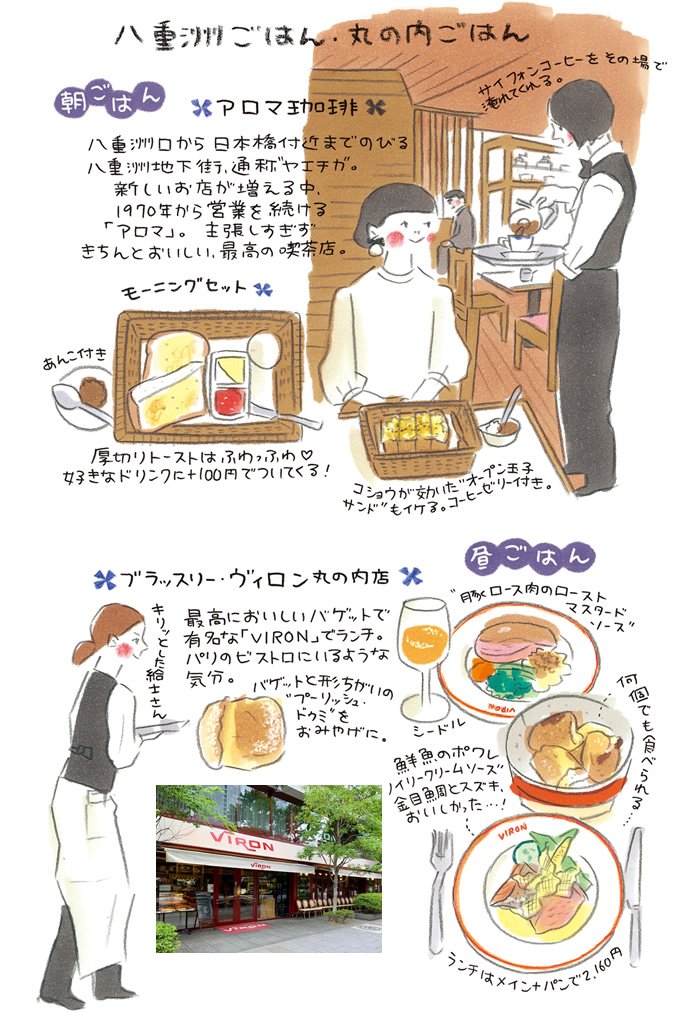 八重洲ごはん・丸の内ごはん
朝ごはん
アロマ珈琲
サイフォンコーヒーをその場で
淹れてくれる。
八重洲口から日本橋付近までのびる
八重洲地下街、通称ヤエチカ。
新しいお店が増える中、
1970年から営業を続ける
「アロマ」。主張しすぎず
きちんとおいしい、最高の喫茶店。
モーニングセット
あんこ付き
厚切りトーストはふわっふわ♡
好きなドリンクに+100円でついてくる!
コショウが効いた"オープン玉子
サンド"もイケる。コーヒーゼリー付き。
昼ごはん
ブラッスリー・ヴィロン丸の内店
キリッとした給士さん
最高においしいバゲットで
有名な「VIRON」でランチ。
パリのビストロにいるような
気分。
バゲットと形ちがいの
"プーリッシュ・
ドゥミ"を
おみやげに。
シードル
"豚ロース肉のロースト
マスタード
ソース"
VIRON
何個でも食べられる…
鮮魚のポワレ
ノイリークリームソース"
金目鯛とスズキ、
おいしかった…!
VIRON
ランチはメイン+パンで2,160円
VIRON
VIRON
VIRON